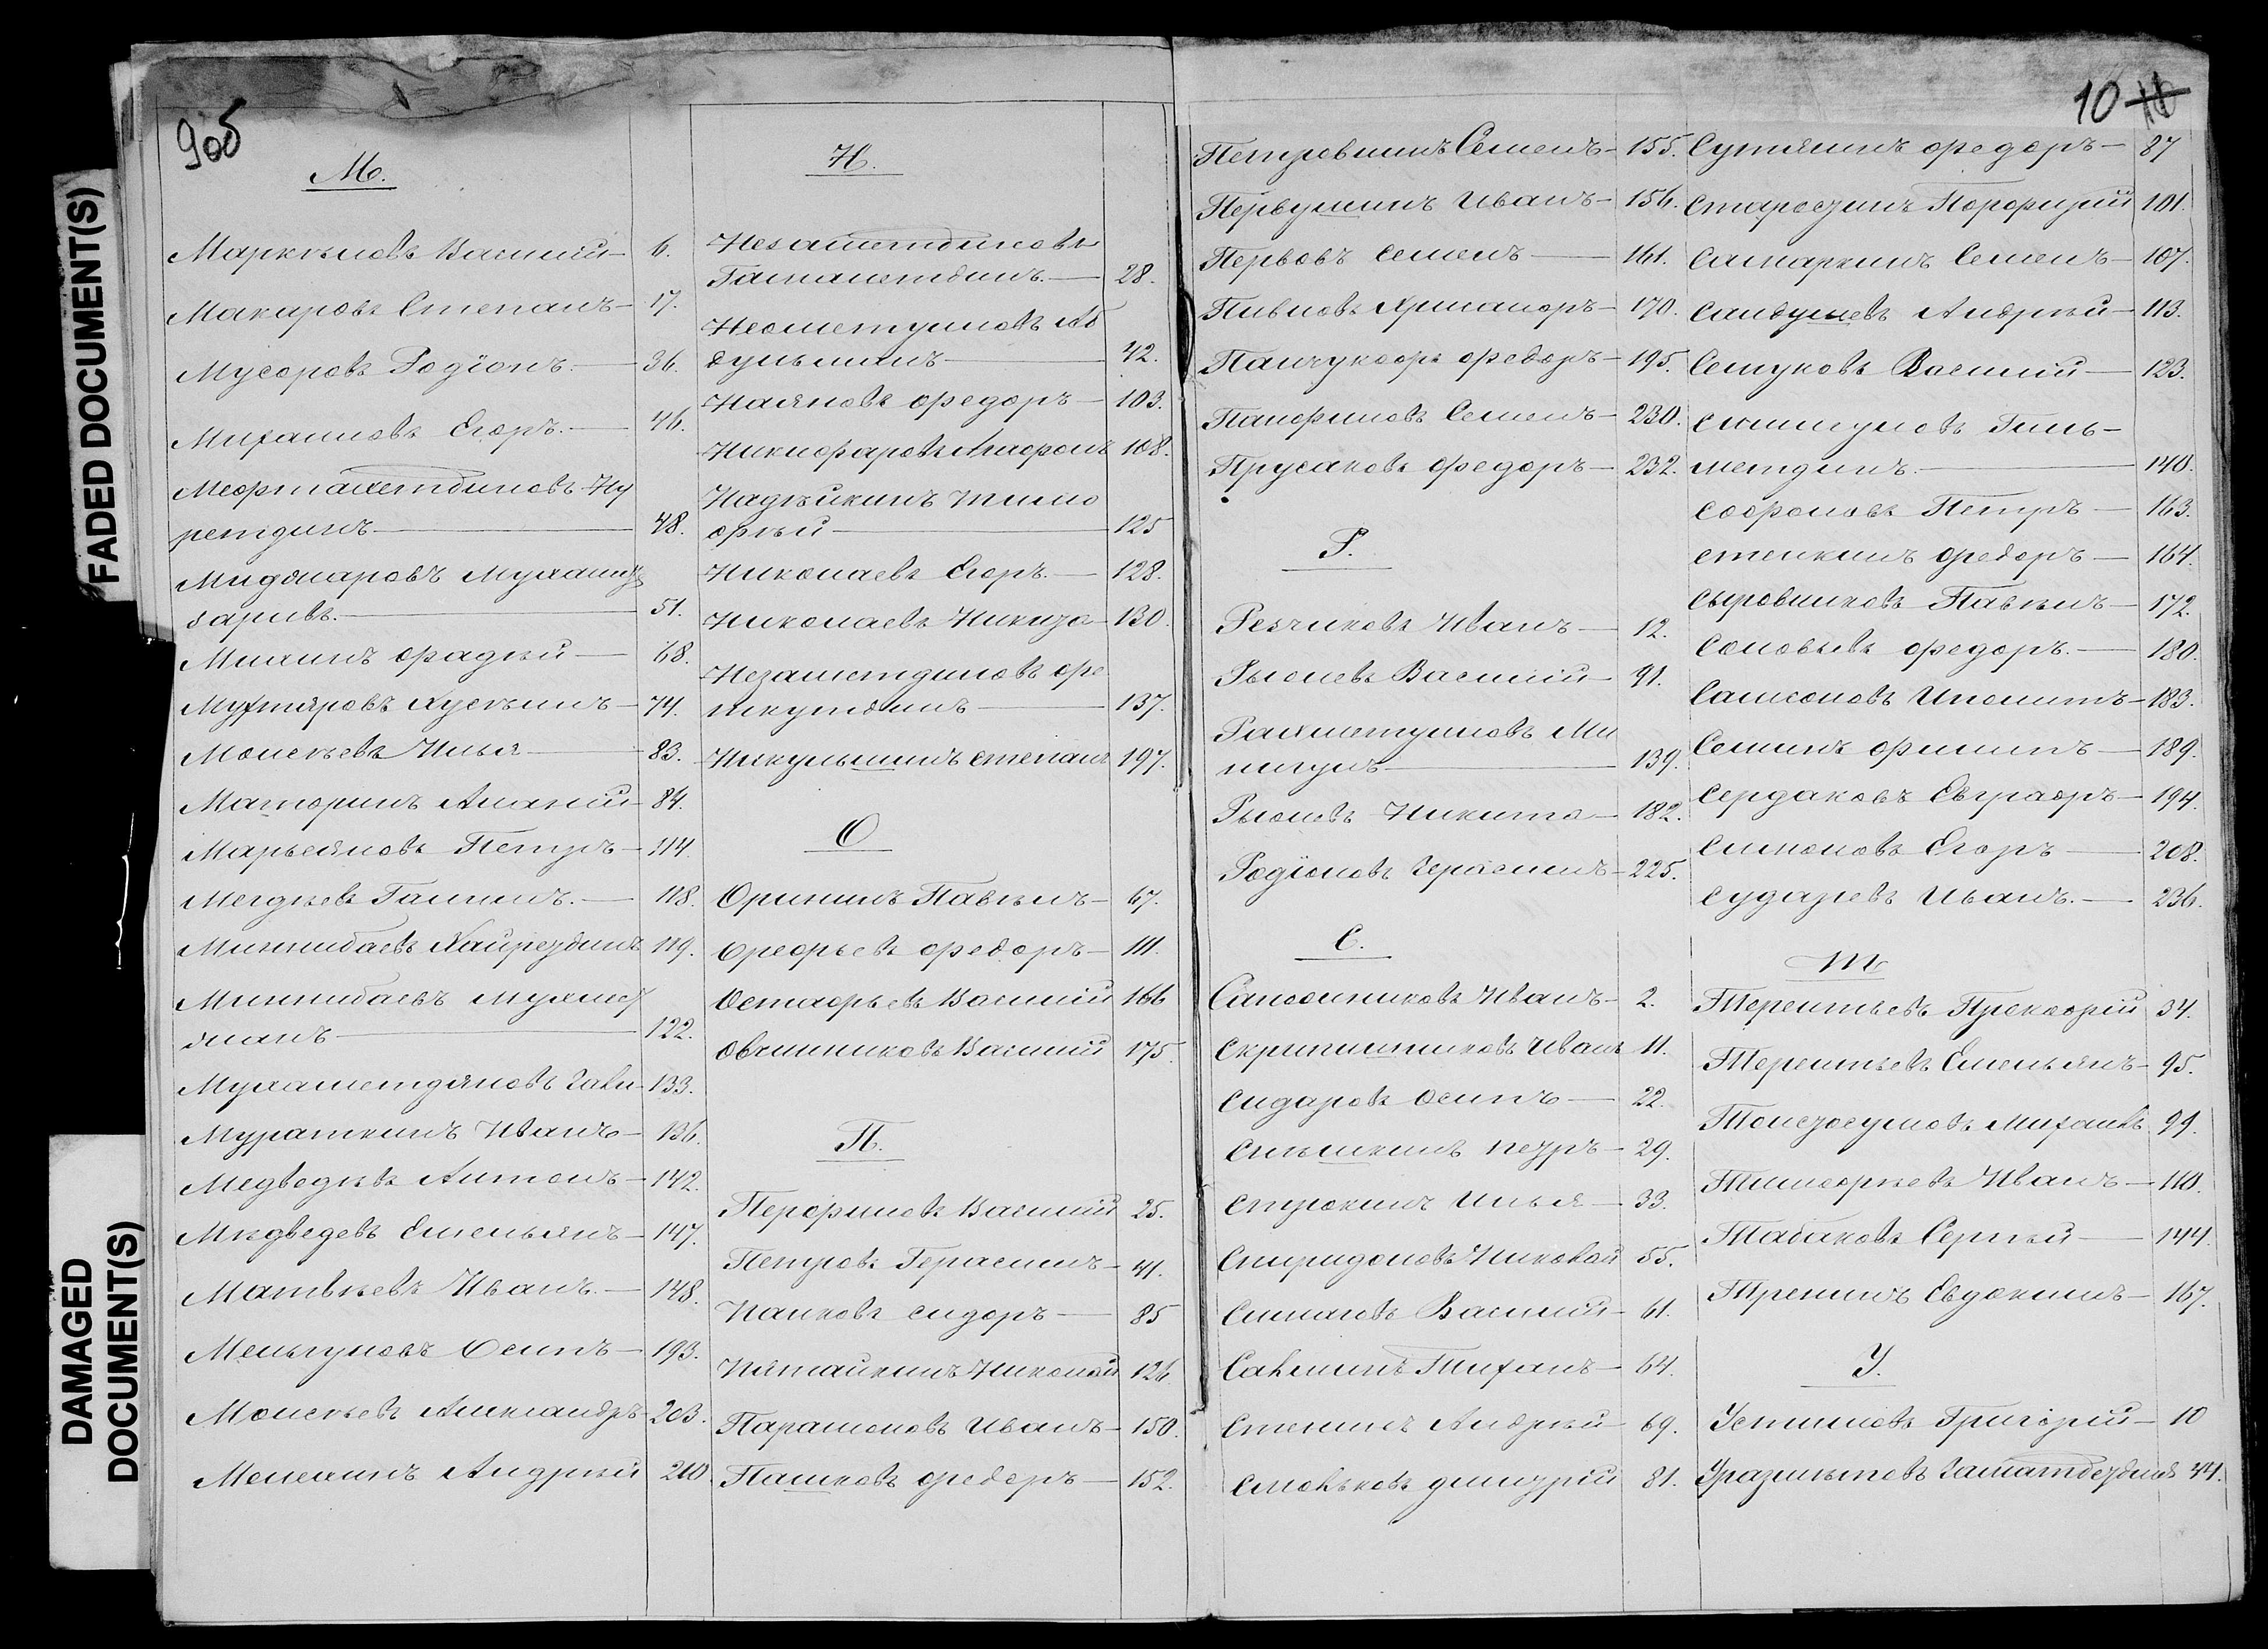 FADED DOCUMENT(S)
DAMAGED DOCUMENT(S)
9об
М.
Маркѣловъ Василій — 6.
Макаровъ Степанъ — 17.
Мусоровъ Родіонъ. — 36.
Михаиловъ Егоръ. — 46.
Меѳтахетдиновъ Ну
ретдинъ — 48.
Мидхаровъ Мухаме
заривъ. — 51.
Милинъ Фадѣй — 68.
Мухтяровъ Хусѣинъ — 74.
Моисѣевъ Илья — 83.
Маторинъ Ананій — 84.
Марьеяновъ Петръ — 114.
Мендѣевъ Галимъ. — 118.
Миннибаевъ Хайрездинъ 119.
Миннибаевъ Мухамед
діанъ — 122.
Мухаметдяновъ Гали — 133.
Мураткинъ Иванъ — 136.
Медведѣвъ Антонъ — 142.
Мѣдведевъ Емельянъ — 147.
Матвѣевъ Иванъ. — 148.
Мельгуновъ Осипъ — 193.
Моисѣевъ Александръ — 203.
Менехинъ Андрѣй 210.
Н.
Незаметдиновъ
Гатаметдинъ. — 28.
Неометуловъ Аб
дульманъ — 42.
Наяновъ Ѳедоръ — 103.
Никифаровъ Агафонъ 108.
Надѣйкинъ Тимо
ѳѣй — 125
Николаевъ Егоръ. — 128.
Николаевъ Никита — 130.
Незаметдиновъ Фе
ткутдинъ — 137.
Никульшинъ Степанъ 197.
О
Оринѣнъ Павѣлъ — 67.
Ореѳьевъ Ѳедоръ — 111.
Остаѳьевъ Василій 166
Овчинниковъ Василій 175.
П.
Перфиловъ Василій 25.
Петровъ Герасимъ — 41.
Панковъ Сидоръ — 85
Пятайкинъ Николай 126.
Парамоновъ Иванъ — 150.
Пашковъ Ѳедоръ — 152.
10 11
Петровнинъ Семенъ — 155.
Первушинъ Иванъ — 156.
Первовъ Семенъ — 161.
Пивновъ Христофоръ — 170.
Панчукоѳъ Ѳедоръ — 195.
Панфиловъ Семенъ — 230.
Прусаковъ Ѳедоръ — 232.
Р.
Резчиковъ Иванъ — 12.
Рыслевъ Василій — 91.
Рахметуловъ Ми
нигулъ — 139.
Рыслевъ Никита — 182.
Родіоновъ Герасимъ — 225.
С.
Сапожниковъ Иванъ — 2.
Скрипниковъ Иванъ 11.
Сидаровъ Осипъ — 22.
Синѣшкинъ Петръ — 29.
Строкинъ Илья — 33.
Спиридоновъ Николай 55.
Симаговъ Василій — 61.
Салминъ Тиханъ — 64.
Стенинъ Андрѣй 69.
Смольковъ Дмитрій 81.
Сутяшинъ Ѳедоръ — 87
Старозинъ Порфирій 101.
Самаркинъ Семенъ — 107.
Сандулевъ Андрѣй — 113.
Семуковъ Василій — 123.
Сюннуловъ Гиль-
метдинъ. — 140.
Софроновъ Петръ — 163.
Стенкинъ Ѳедоръ — 164.
Сыровниковъ Павѣлъ — 172.
Соловьевъ Ѳедоръ. — 180.
Самсоновъ Иполитъ — 183.
Семинъ Филипъ — 189.
Сердаковъ Евграфъ — 194.
Симоновъ Егоръ — 208.
Сударевъ Иванъ. — 236.
Т
Терентьевъ Прокофій 34.
Терентьевъ Емельянъ — 95.
Толстосумовъ Михаилъ 99.
Тимоѳѣевъ Иванъ — 110.
Табаковъ Сергѣй — 144.
Тренинъ Евдокимъ — 167.
У.
Устиновъ Григорій — 10
Уразильтовъ Гаматдездинъ 44.